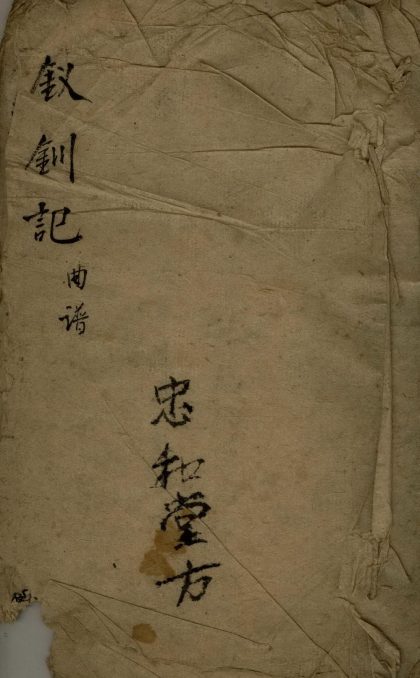 釵釧記
曲谱
忠和堂方